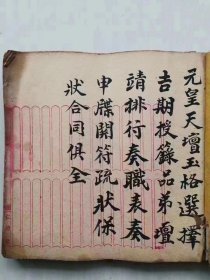 元皇天壇玉格選擇
吉期授籙品弟壇
靖排行奏職表奏
申牒關符疏狀保
狀合同俱全